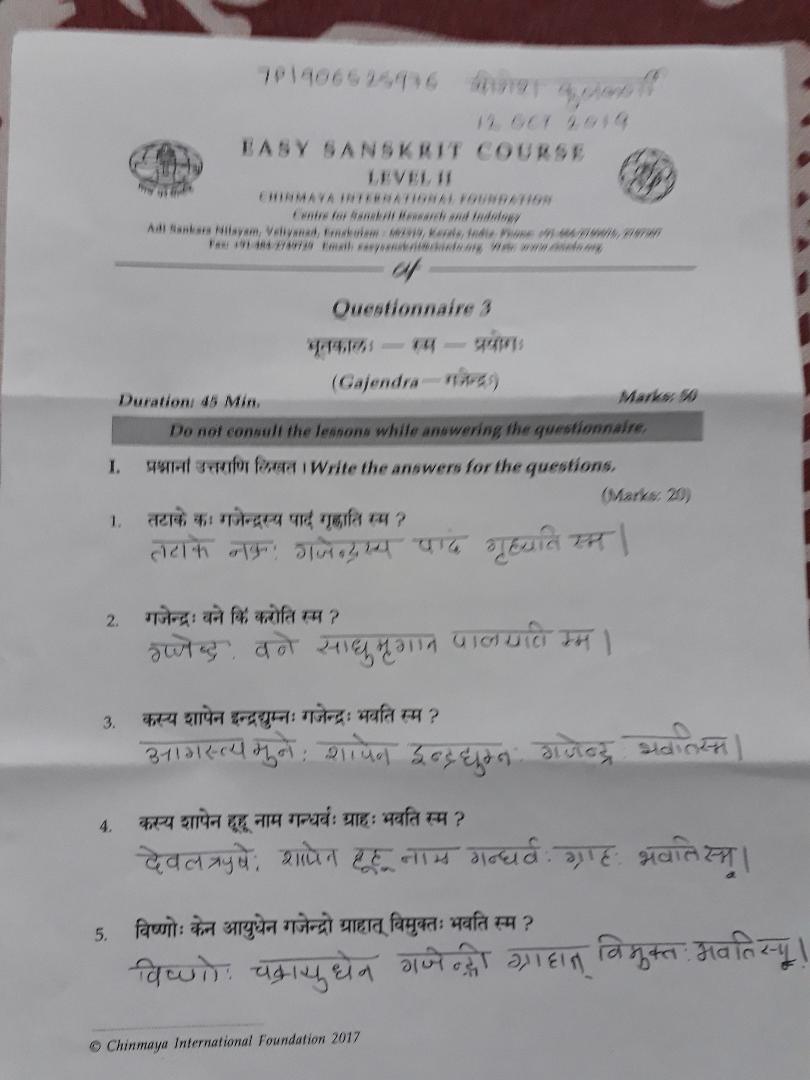 781906525976 योगेश कुलकर्णी
12 Oct 2019
EASY SANSKRIT COURSE
LEVEL II
CHINMAYA INTERNATIONAL FOUNDATION
Centre for Sanskrit Research and Indology
Adi Sankara Nilayam, Veliyanad, Ernakulam - 682313, Kerala, India.
Questionnaire 3
भूतकालः — स्म — प्रयोगः
(Gajendra — गजेन्द्रः)
Duration: 45 Min. Marks: 50
Do not consult the lessons while answering the questionnaire.
I. प्रश्नानां उत्तराणि लिखत । Write the answers for the questions.
(Marks: 20)
1. तटाके कः गजेन्द्रस्य पादं गृह्णाति स्म ?
तटाके नक्रः गजेन्द्रस्य पादं गृह्यति स्म |
2. गजेन्द्रः वने किं करोति स्म ?
गजेन्द्रः वने साधुमृगान पालयति स्म |
3. कस्य शापेन इन्द्रद्युम्नः गजेन्द्रः भवति स्म ?
आगस्त्यमुनेः शापेन इन्द्रद्युम्नः गजेन्द्रः भवतिस्म |
4. कस्य शापेन हूहू नाम गन्धर्वः ग्राहः भवति स्म ?
देवलऋषेः शापेन हूहू नाम गन्धर्वः ग्राहः भवतिस्म |
5. विष्णोः केन आयुधेन गजेन्द्रो ग्राहात् विमुक्तः भवति स्म ?
विष्णोः चक्रायुधेन गजेन्द्रो ग्राहात् विमुक्तः भवतिस्म |
© Chinmaya International Foundation 2017